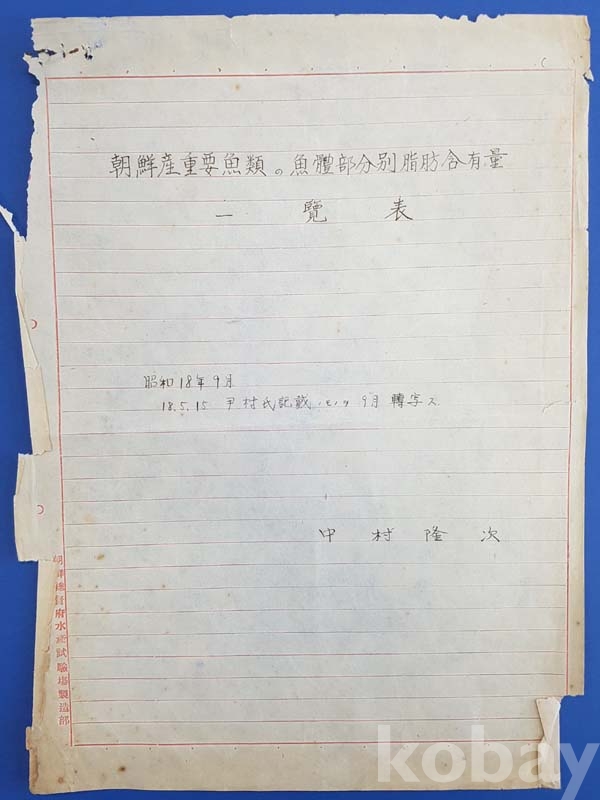 朝鮮産重要魚類の魚體部分別脂肪含有量
一覽表
昭和18年9月
18.5.15 尹村氏記載ノモノ 9月 轉写ス
中村隆次
朝鮮總督府水産試驗場製造部
kobay